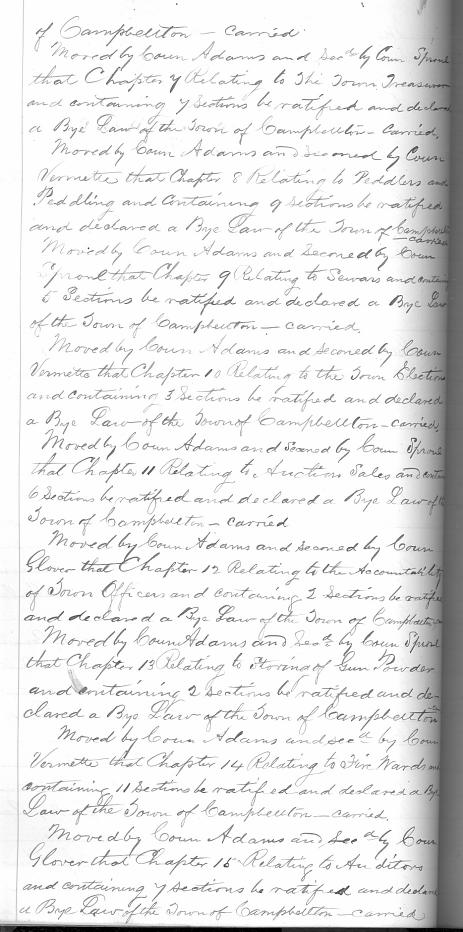 of Campbellton - carried
Moved by Coun Adams and Secd by Coun Sproul
that Chapter 7 Relating to The Town Treasurer
and containing 7 Sections be ratified and declared
a Bye Law of the Town of Campbellton - carried.
Moved by Coun Adams and Seconed by Coun
Vermette that Chapter 8 Relating to Peddlers and
Peddling and Containing 9 Sections be ratified
and declared a Bye Law of the Town of Campbellton
- carried
Moved by Coun Adams and Seconed by Coun
Sproul that Chapter 9 Relating to Sewars and contain
5 Sections be ratified and declared a Bye Law
of the Town of Campbellton - carried.
Moved by Coun Adams and Seconed by Coun
Vermette that Chapter 10 Relating to the Town Election
and containing 3 Sections be ratified and declared
a Bye Law of the Town of Campbellton - carried.
Moved by Coun Adams and Seconed by Coun Sproul
that Chapter 11 Relating to Auction Sales and contain
6 Sections be ratified and declared a Bye Law of the
Town of Campbellton - carried
Moved by Coun Adams and Seconed by Coun
Glover that Chapter 12 Relating to the Accountability
of Town Officers and containing 2 Sections be ratified
and declared a Bye Law of the Town of Campbellton
Moved by Coun Adams and Secd by Coun Sproul
that Chapter 13 Relating to Storing of Gun Powder
and containing 2 Sections be ratified and de-
clared a Bye Law of the Town of Campbellton
Moved by Coun Adams and secd by Coun
Vermette that Chapter 14 Relating to Fire Wards and
containing 11 Sections be ratified and declared a Bye
Law of the Town of Campbellton - carried.
Moved by Coun Adams and Secd by Coun
Glover that Chapter 15 Relating to Auditors
and containing 7 Sections be ratified and declared
a Bye Law of the Town of Campbellton - carried